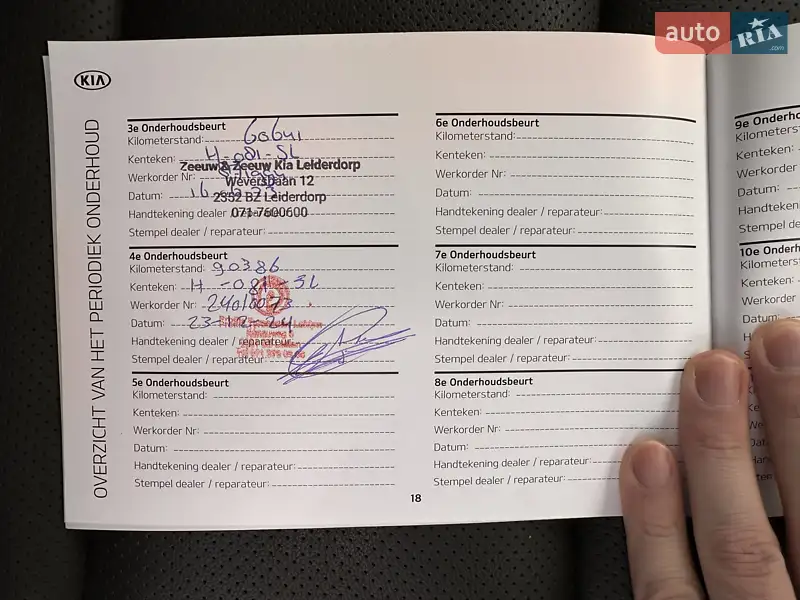 auto RIA .com
KIA
OVERZICHT VAN HET PERIODIEK ONDERHOUD
3e Onderhoudsbeurt
Kilometerstand:
Kenteken: H-081-SL
Zeeuw & Zeeuw Kia Leiderdorp
Werkorder Nr:
Weversbaan 12
Datum:
2352 BZ Leiderdorp
Handtekening dealer / reparateur:
071-7600600
Stempel dealer / reparateur:
4e Onderhoudsbeurt
Kilometerstand: 90386
Kenteken: H-081-SL
Werkorder Nr: 24010073
Datum: 23-12-24
Handtekening dealer / reparateur:
Stempel dealer / reparateur:
5e Onderhoudsbeurt
Kilometerstand:
Kenteken:
Werkorder Nr:
Datum:
Handtekening dealer / reparateur:
Stempel dealer / reparateur:
6e Onderhoudsbeurt
Kilometerstand:
Kenteken:
Werkorder Nr:
Datum:
Handtekening dealer / reparateur:
Stempel dealer / reparateur:
7e Onderhoudsbeurt
Kilometerstand:
Kenteken:
Werkorder Nr:
Datum:
Handtekening dealer / reparateur:
Stempel dealer / reparateur:
8e Onderhoudsbeurt
Kilometerstand:
Kenteken:
Werkorder Nr:
Datum:
Handtekening dealer / reparateur:
Stempel dealer / reparateur:
18
9e Onderho
Kilometers
Kenteken:
Werkorder
Datum:
Handteken
Stempel de
10e Onder
Kilometers
Kenteken:
Werkorder
Datum: